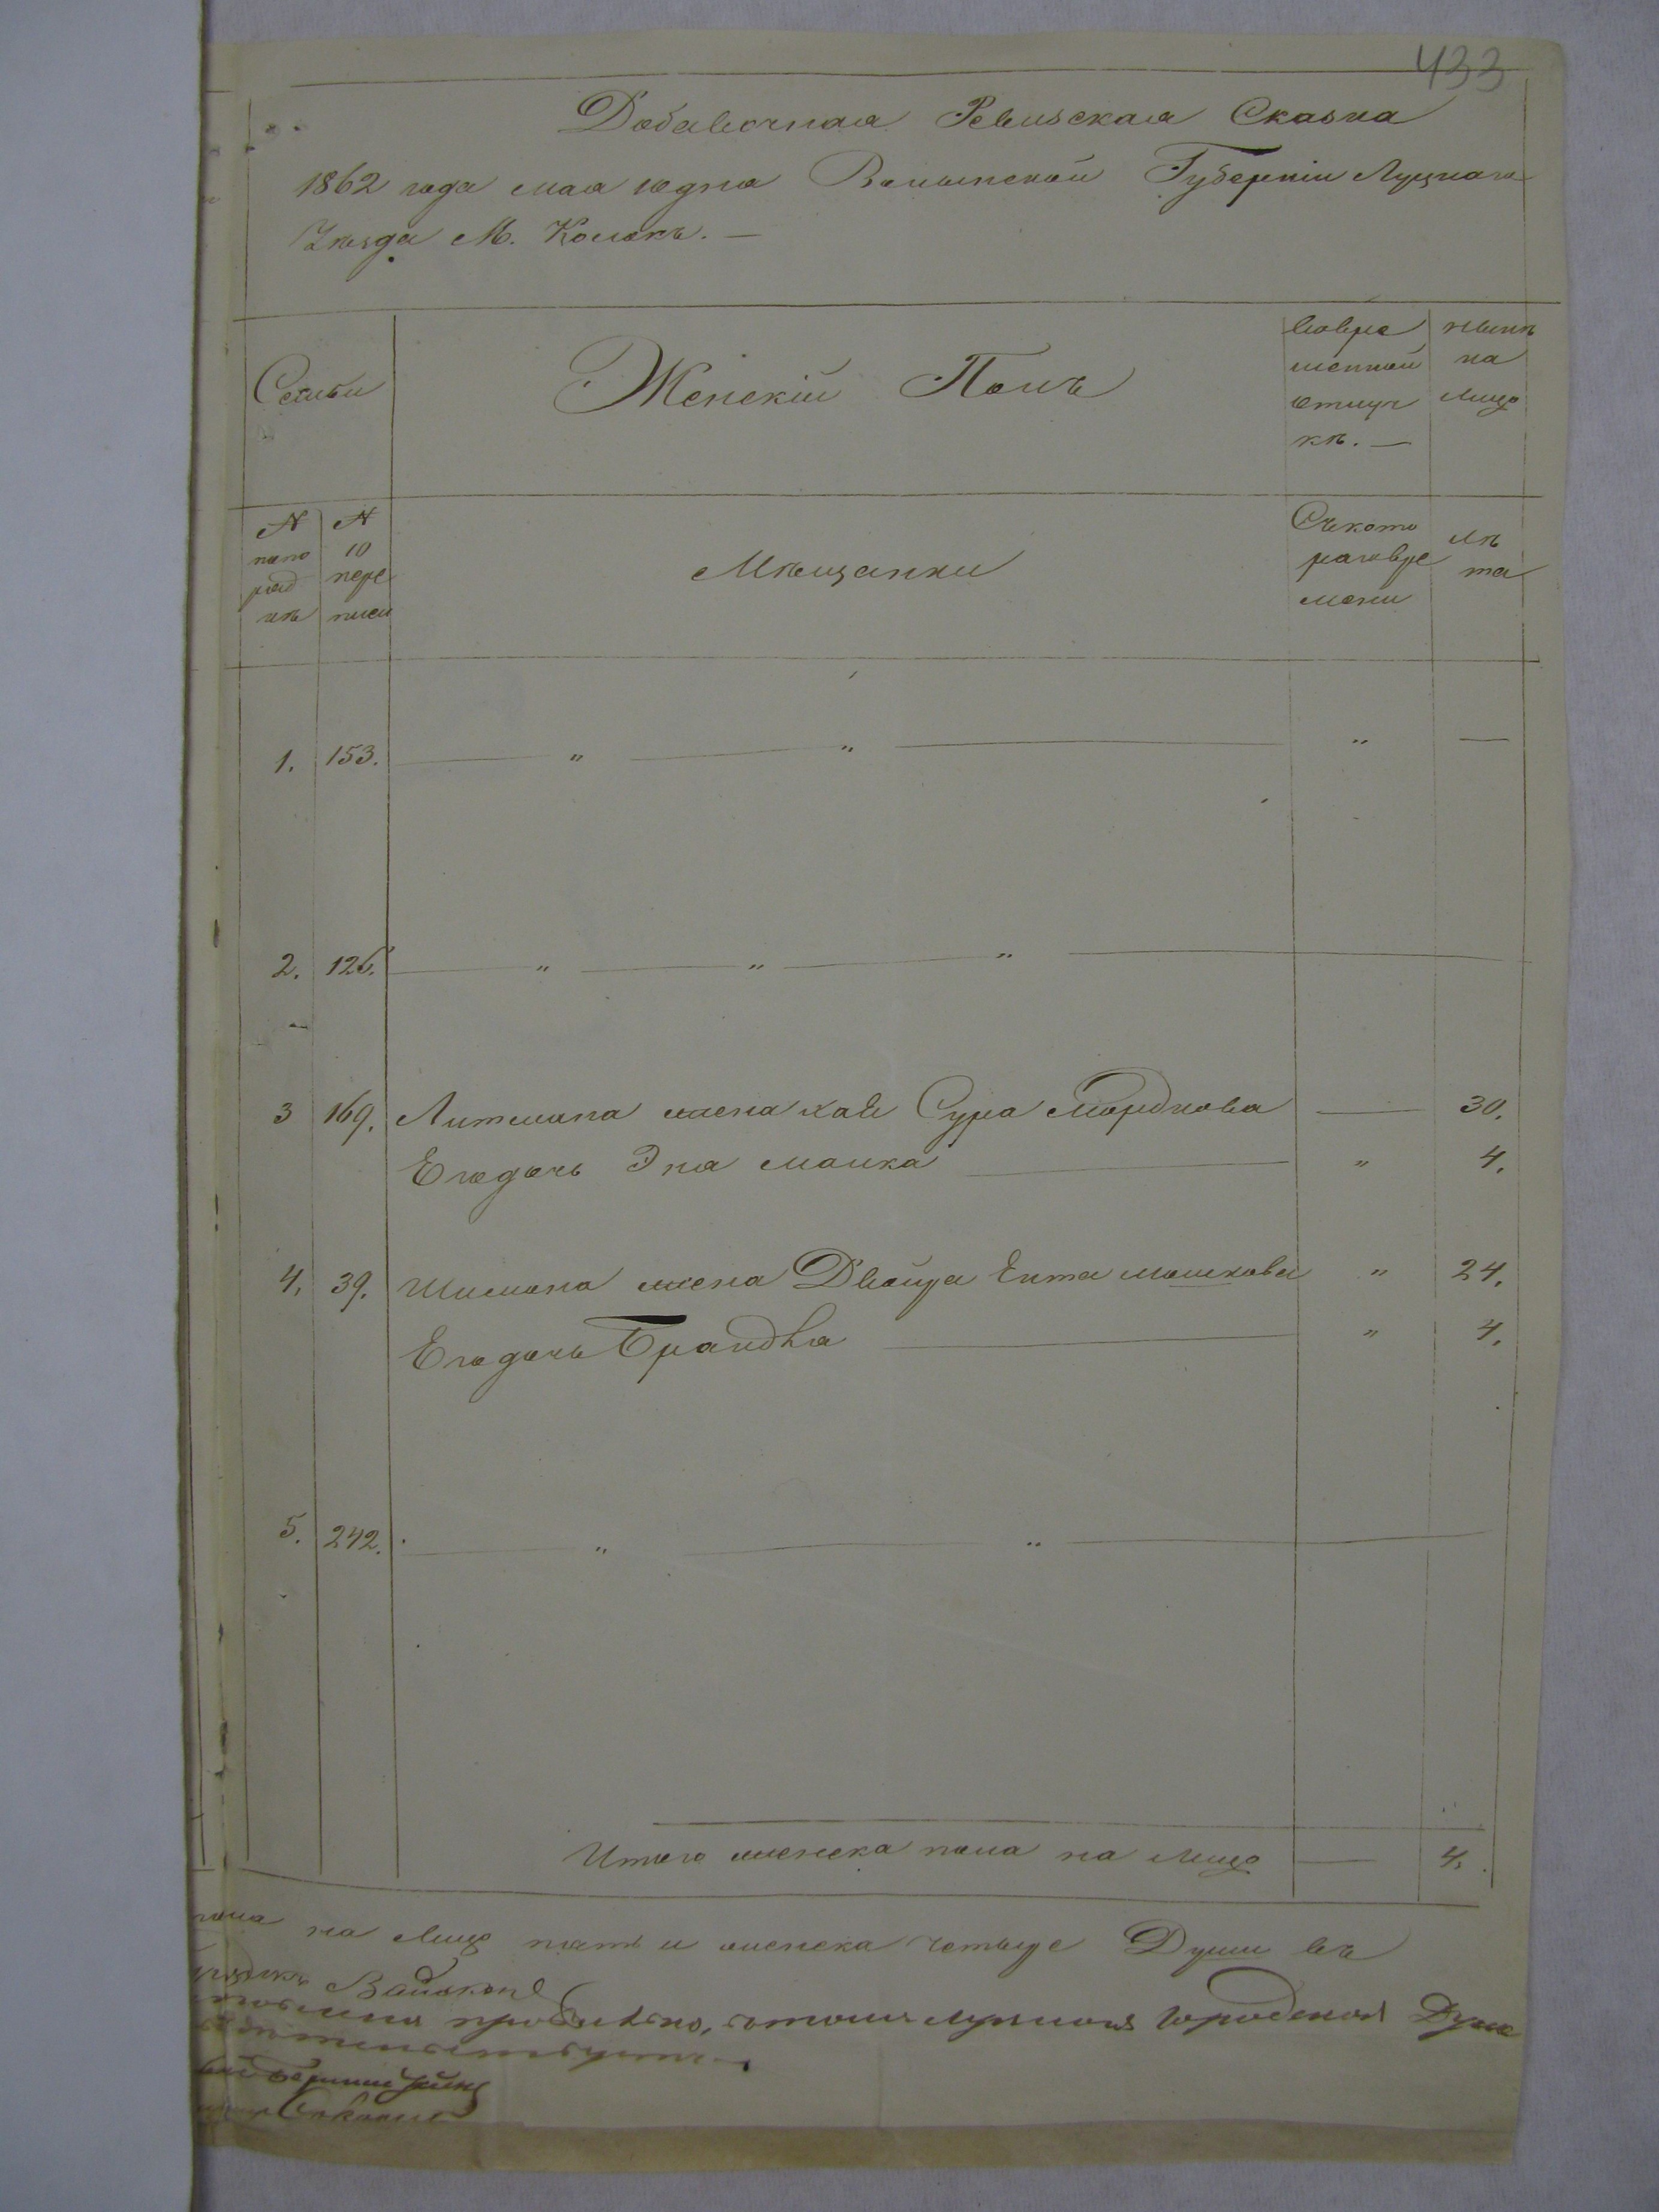 433
Добавочная Ревизская Сказка
1862 года мая дня Волынской Губерніи Луцкаго
Уѣзда М. Колокъ. —
Семьи
Женскій Полъ
вовре
менной
отлуч
кѣ. —
нынѣ
на
лицо
№
попо
ряд
кѣ
№
10
пере
писи
Мѣщанки
Съкото
раговре
мени
лѣ
та
1. 153. — " — " — " —
2. 126. — " — " — " —
3 169. Литмана жена Хая Сура Мордкова — 30.
Егодочь Эна Малка — " 4.
4. 39. Шимона жена Двойра Ента Мошкова " 24.
Егодочь Брандля — " 4.
5. 242. — " — " —
Итого женска пола на лицо — 4.
пола на лицо пять и женска четыре Души въ
Городской Думе